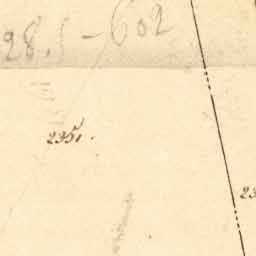 28,1-602
235,
23